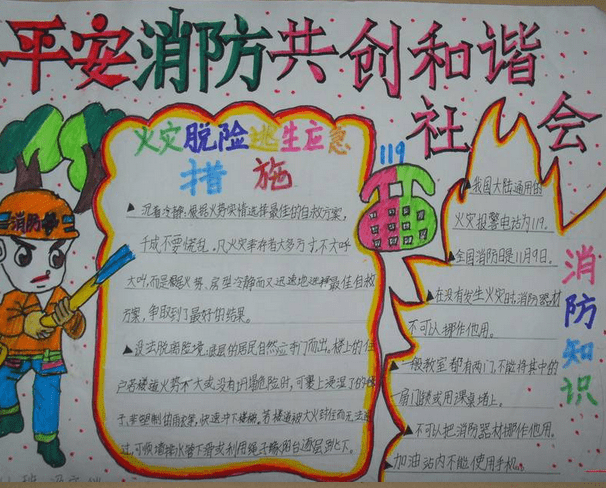 平安消防共创和谐
社会
火灾脱险逃生应急
措施
119
消防
沉着冷静，根据火势实情选择最佳的自救方案，
千成不要慌乱。凡火幸存者大多方寸，不大呼
大叫，而是根据火势、房型冷静而又迅速地选择最佳自救
方案，争取到了最好的结果。
设法脱离险境：底层的居民自然应夺门而出。楼上的住
户若楼道火势不大或没有坍塌危险时，可裹上浸湿了的
快速冲下楼梯。若楼道被大火封住而无法通
过，可顺墙排水管下滑或利用绳子缘阳台逐层跳下。
我国大陆通用的
火灾报警电话为119。
全国消防日是11月9日。
在没有发生火灾时，消防器材
不可以挪作他用。
一般教室都有两门，不能将其中的
一扇门锁或用课桌堵上。
不可以把消防器材挪作他用。
加油站内不能使用手机。
消防知识